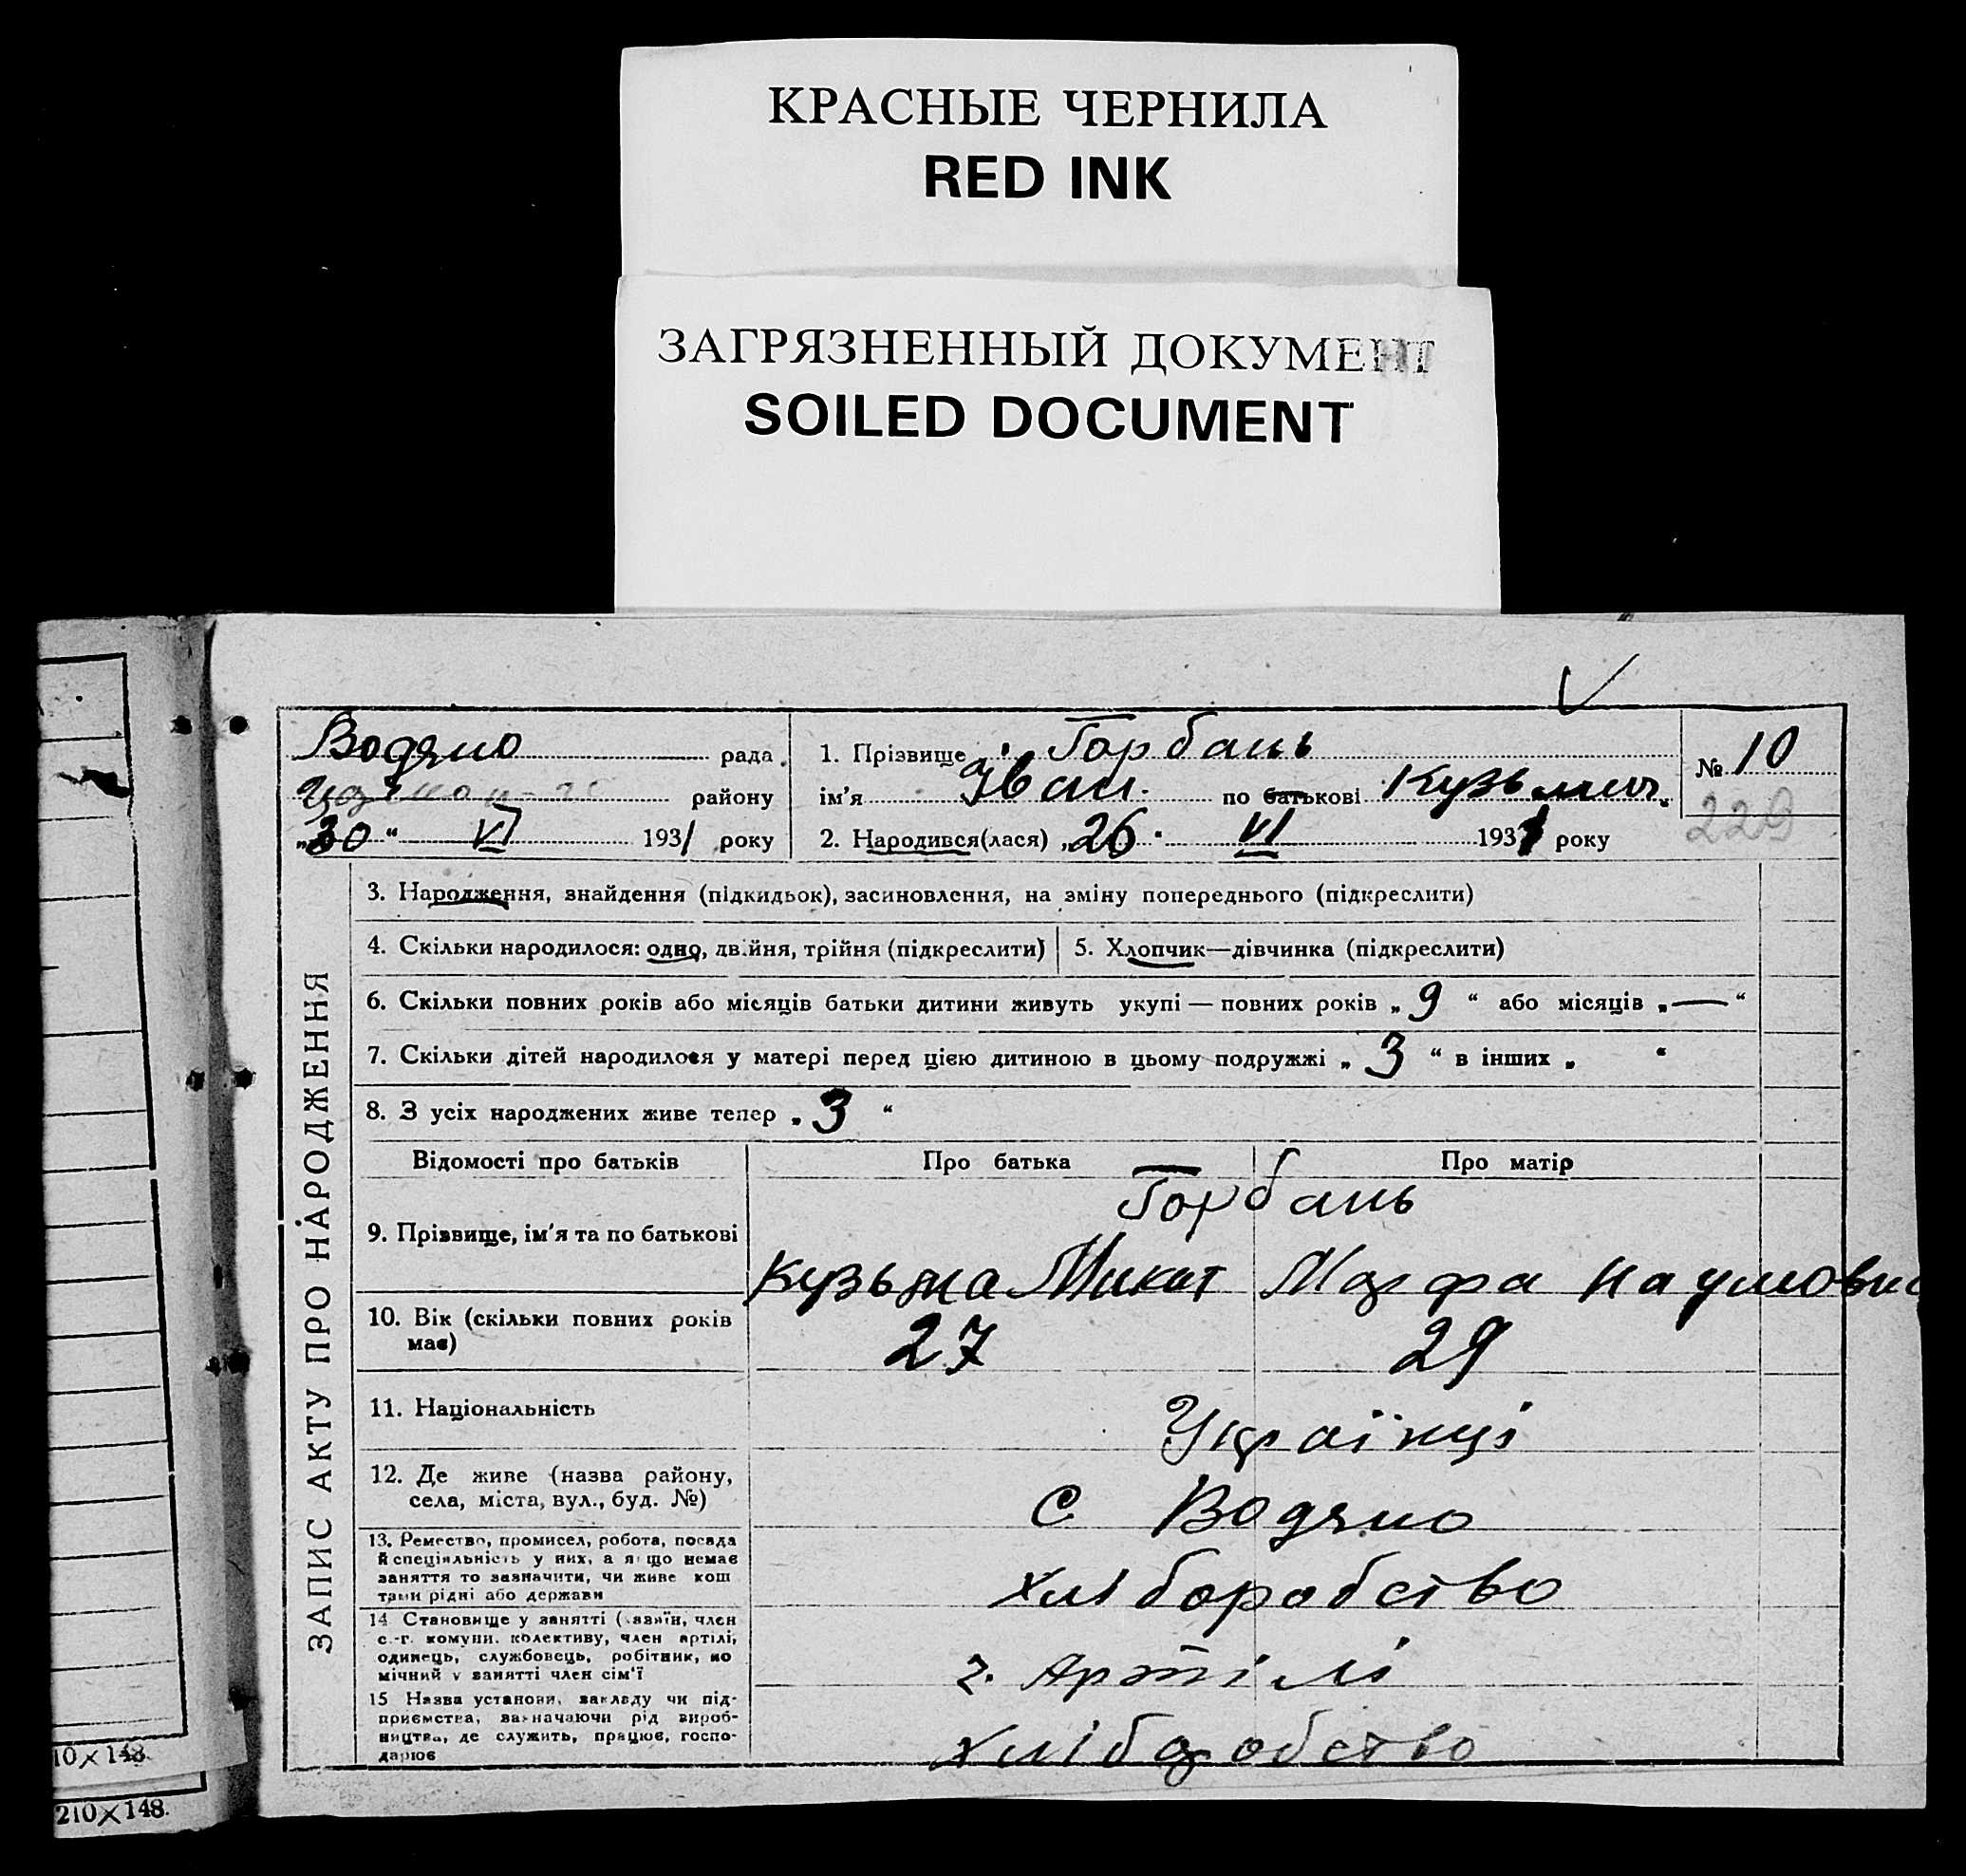 КРАСНЫЕ ЧЕРНИЛА
RED INK
ЗАГРЯЗНЕННЫЙ ДОКУМЕНТ
SOILED DOCUMENT
Водяно рада
району
„30“ VI 1931 року
1. Прізвище Горбань
ім’я Іван. по батькові Кузьмич.
2. Народився(лася) „26“ VI 1931 року
№ 10
229
ЗАПИС АКТУ ПРО НАРОДЖЕННЯ
3. Народження, знайдення (підкидьок), засиновлення, на зміну попереднього (підкреслити)
4. Скільки народилося: одно, двійня, трійня (підкреслити)
5. Хлопчик—дівчинка (підкреслити)
6. Скільки повних років або місяців батьки дитини живуть укупі — повних років „9“ або місяців „—“
7. Скільки дітей народилося у матері перед цією дитиною в цьому подружжі „3“ в інших „ “
8. З усіх народжених живе тепер „3“
Відомості про батьків
Про батька
Про матір
9. Прізвище, ім’я та по батькові
Горбань
Кузьма Микит
Марфа Наумовн
10. Вік (скільки повних років
має)
27
29
11. Національність
Українці
12. Де живе (назва району,
села, міста, вул., буд. №)
С Водяно
13. Ремество, промисел, робота, посада
й спеціяльність у них, а якщо немає
заняття то зазначити, чи живе кош
тами рідні або держави
хліборобство
14 Становище у занятті (хазяїн, член
с.-г. комуни. колективу, член артілі,
одинець, службовець, робітник, по
мічний у занятті член сім’ї
ч. Артілі
15 Назва установи, закладу чи під-
приємства, зазначаючи рід вироб-
ництва, де служить, працює, госпо-
дарює
хліборобство
10×148.
210×148.